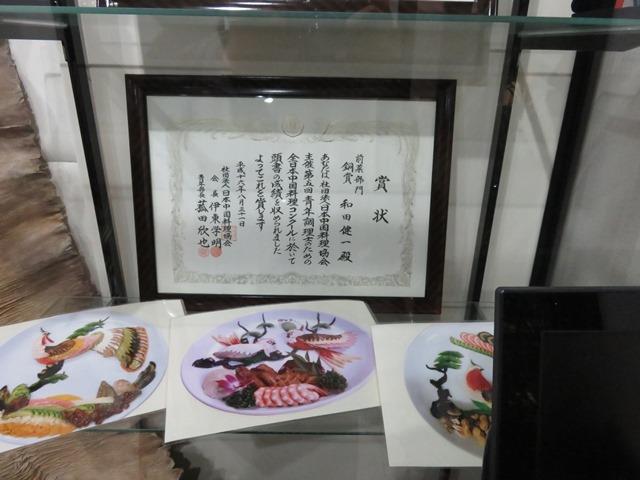 賞状
前菜部門
銅賞 和田健一殿
あなたは、社団法人日本中国料理協会
主催第五回青年調理士のための
全日本中国料理コンクールに於いて
頭書の成績を収められました
よってこれを賞します
平成十六年八月三十一日
社団法人日本中国料理協会
会長 伊東学明
青年部長 菰田欣也